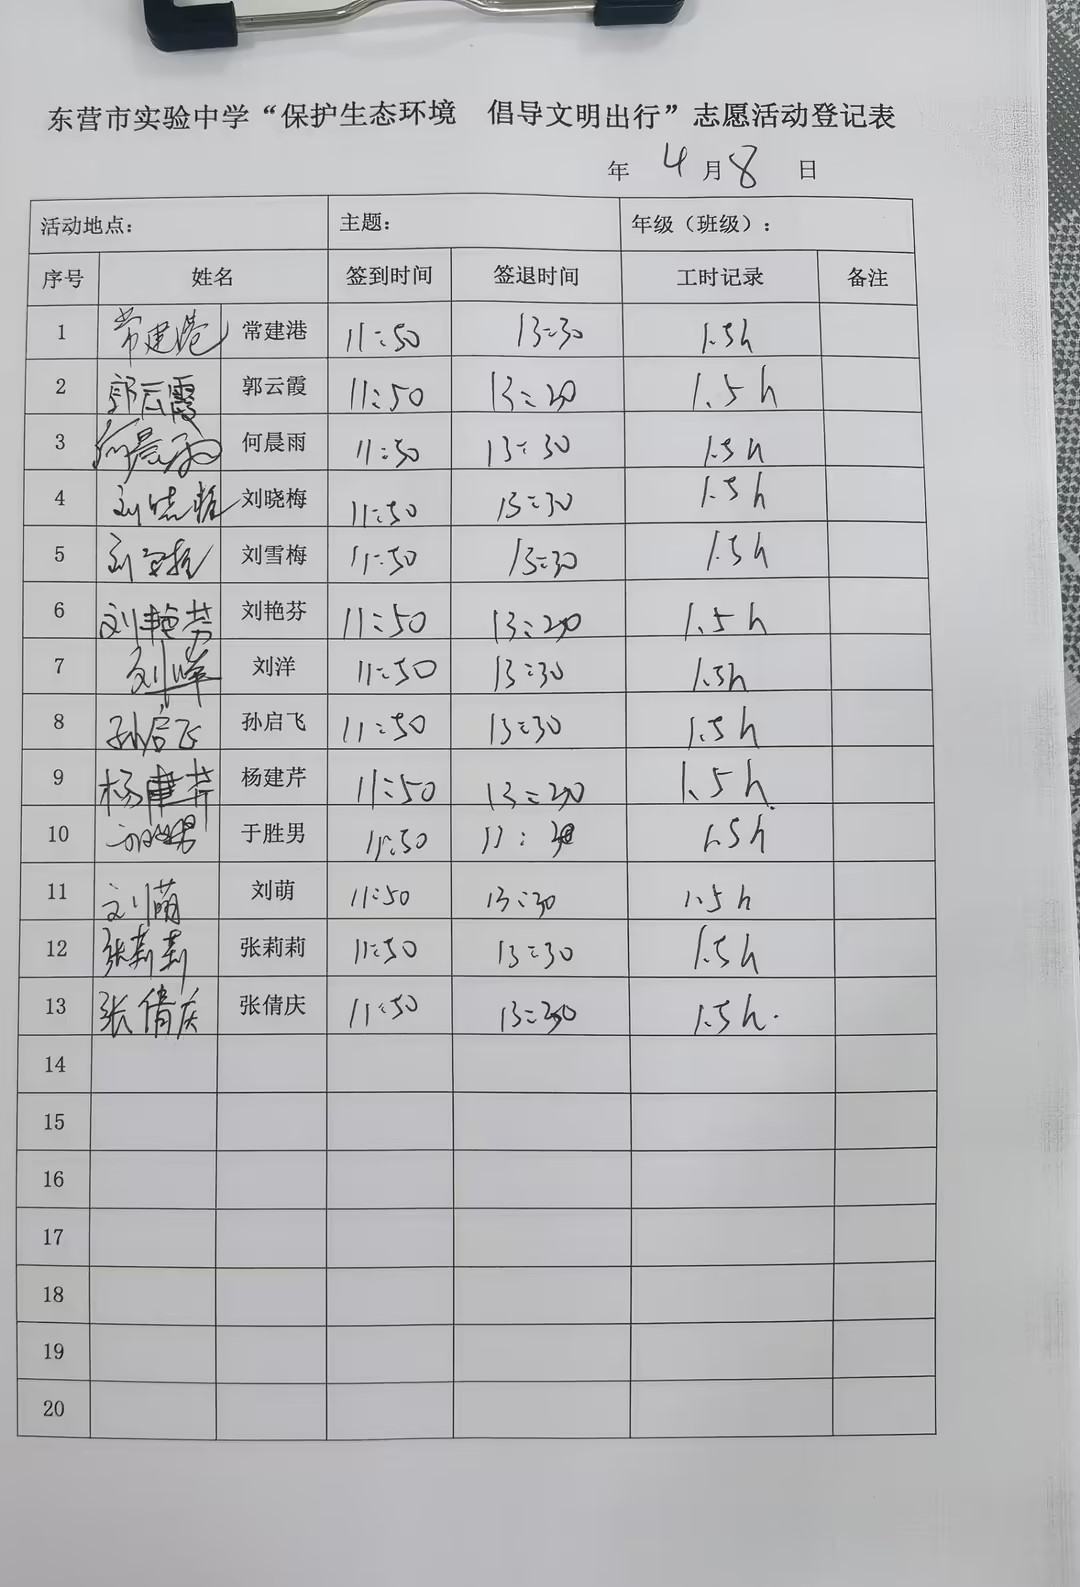 东营市实验中学“保护生态环境 倡导文明出行”志愿活动登记表
年 4 月 8 日
活动地点： 主题： 年级（班级）：
序号 姓名 签到时间 签退时间 工时记录 备注
1 常建港 常建港 11:50 13:30 1.5h
2 郭云霞 郭云霞 11:50 13:30 1.5h
3 何晨雨 何晨雨 11:50 13:30 1.5h
4 刘晓梅 刘晓梅 11:50 13:30 1.5h
5 刘雪梅 刘雪梅 11:50 13:30 1.5h
6 刘艳芬 刘艳芬 11:50 13:30 1.5h
7 刘洋 11:50 13:30 1.5h
8 孙启飞 孙启飞 11:50 13:30 1.5h
9 杨建芹 杨建芹 11:50 13:30 1.5h
10 于胜男 11:50 1.5h
11 刘萌 刘萌 11:50 13:30 1.5h
12 张莉莉 张莉莉 11:50 13:30 1.5h
13 张倩庆 张倩庆 11:50 13:30 1.5h.
14
15
16
17
18
19
20